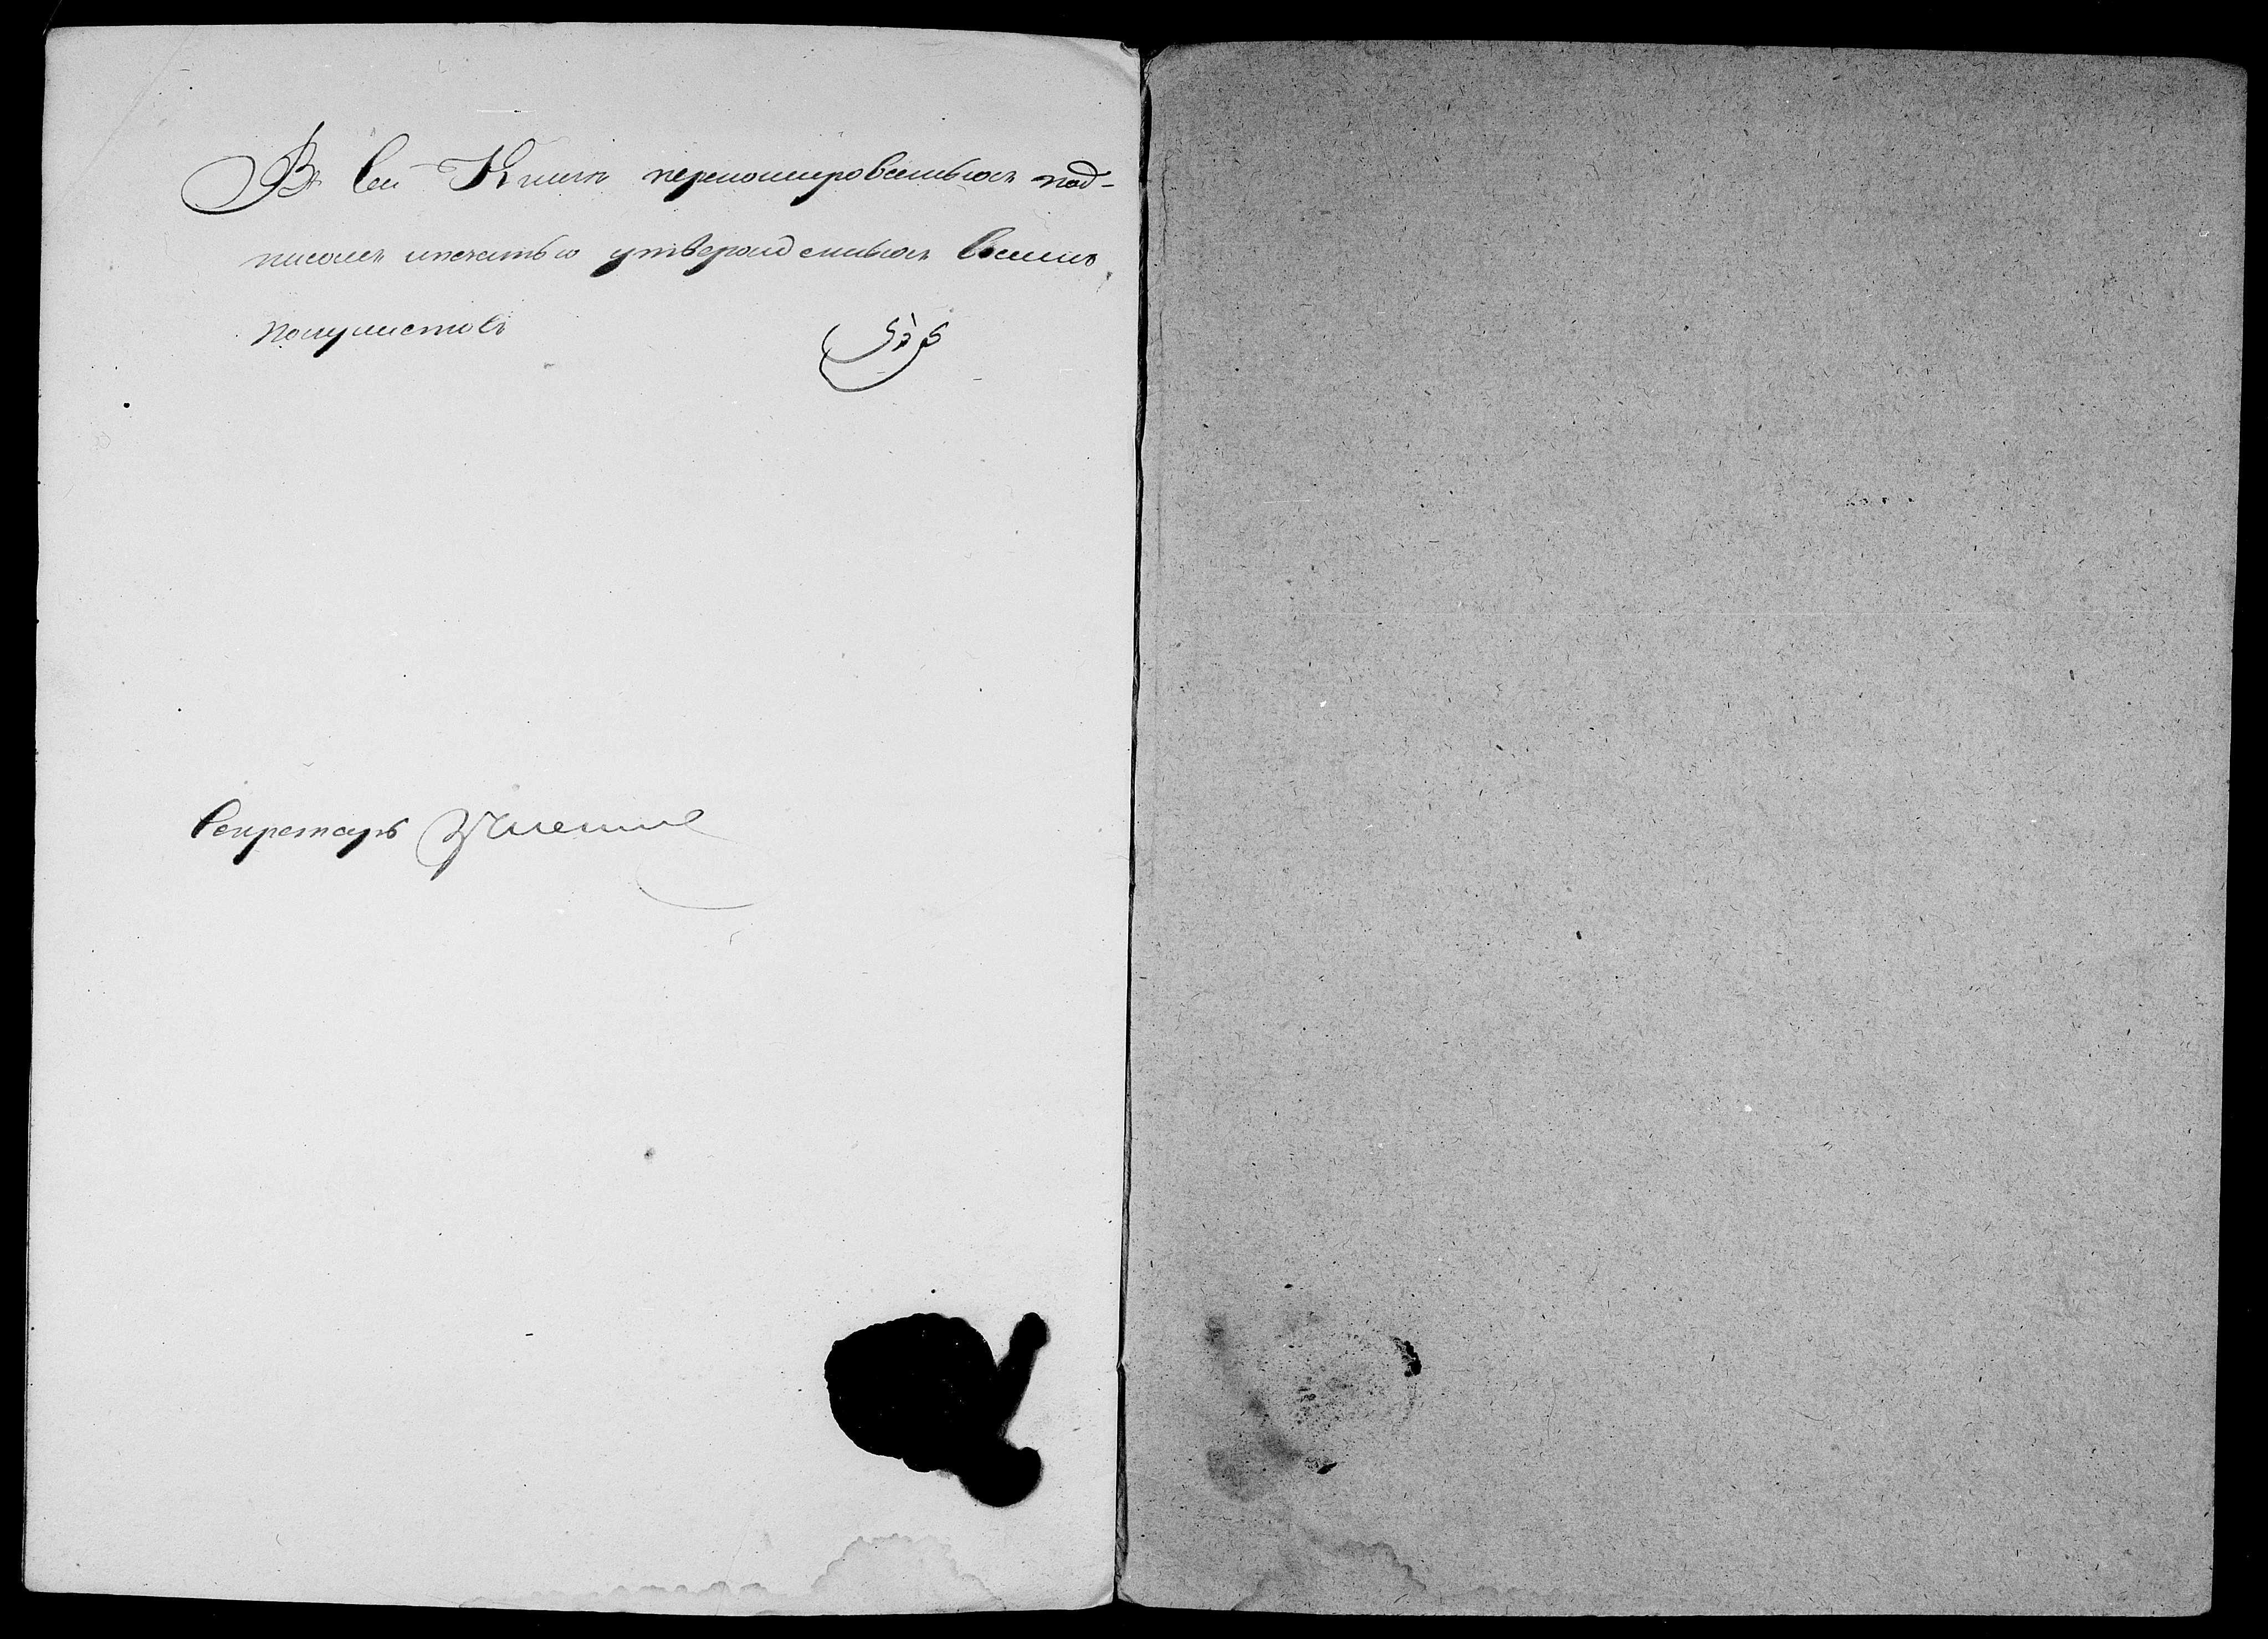 Въ сей Книгѣ перномированныхъ под-
писомъ ипечатью утвержденныхъ восемь
полулистовъ
Секретарь